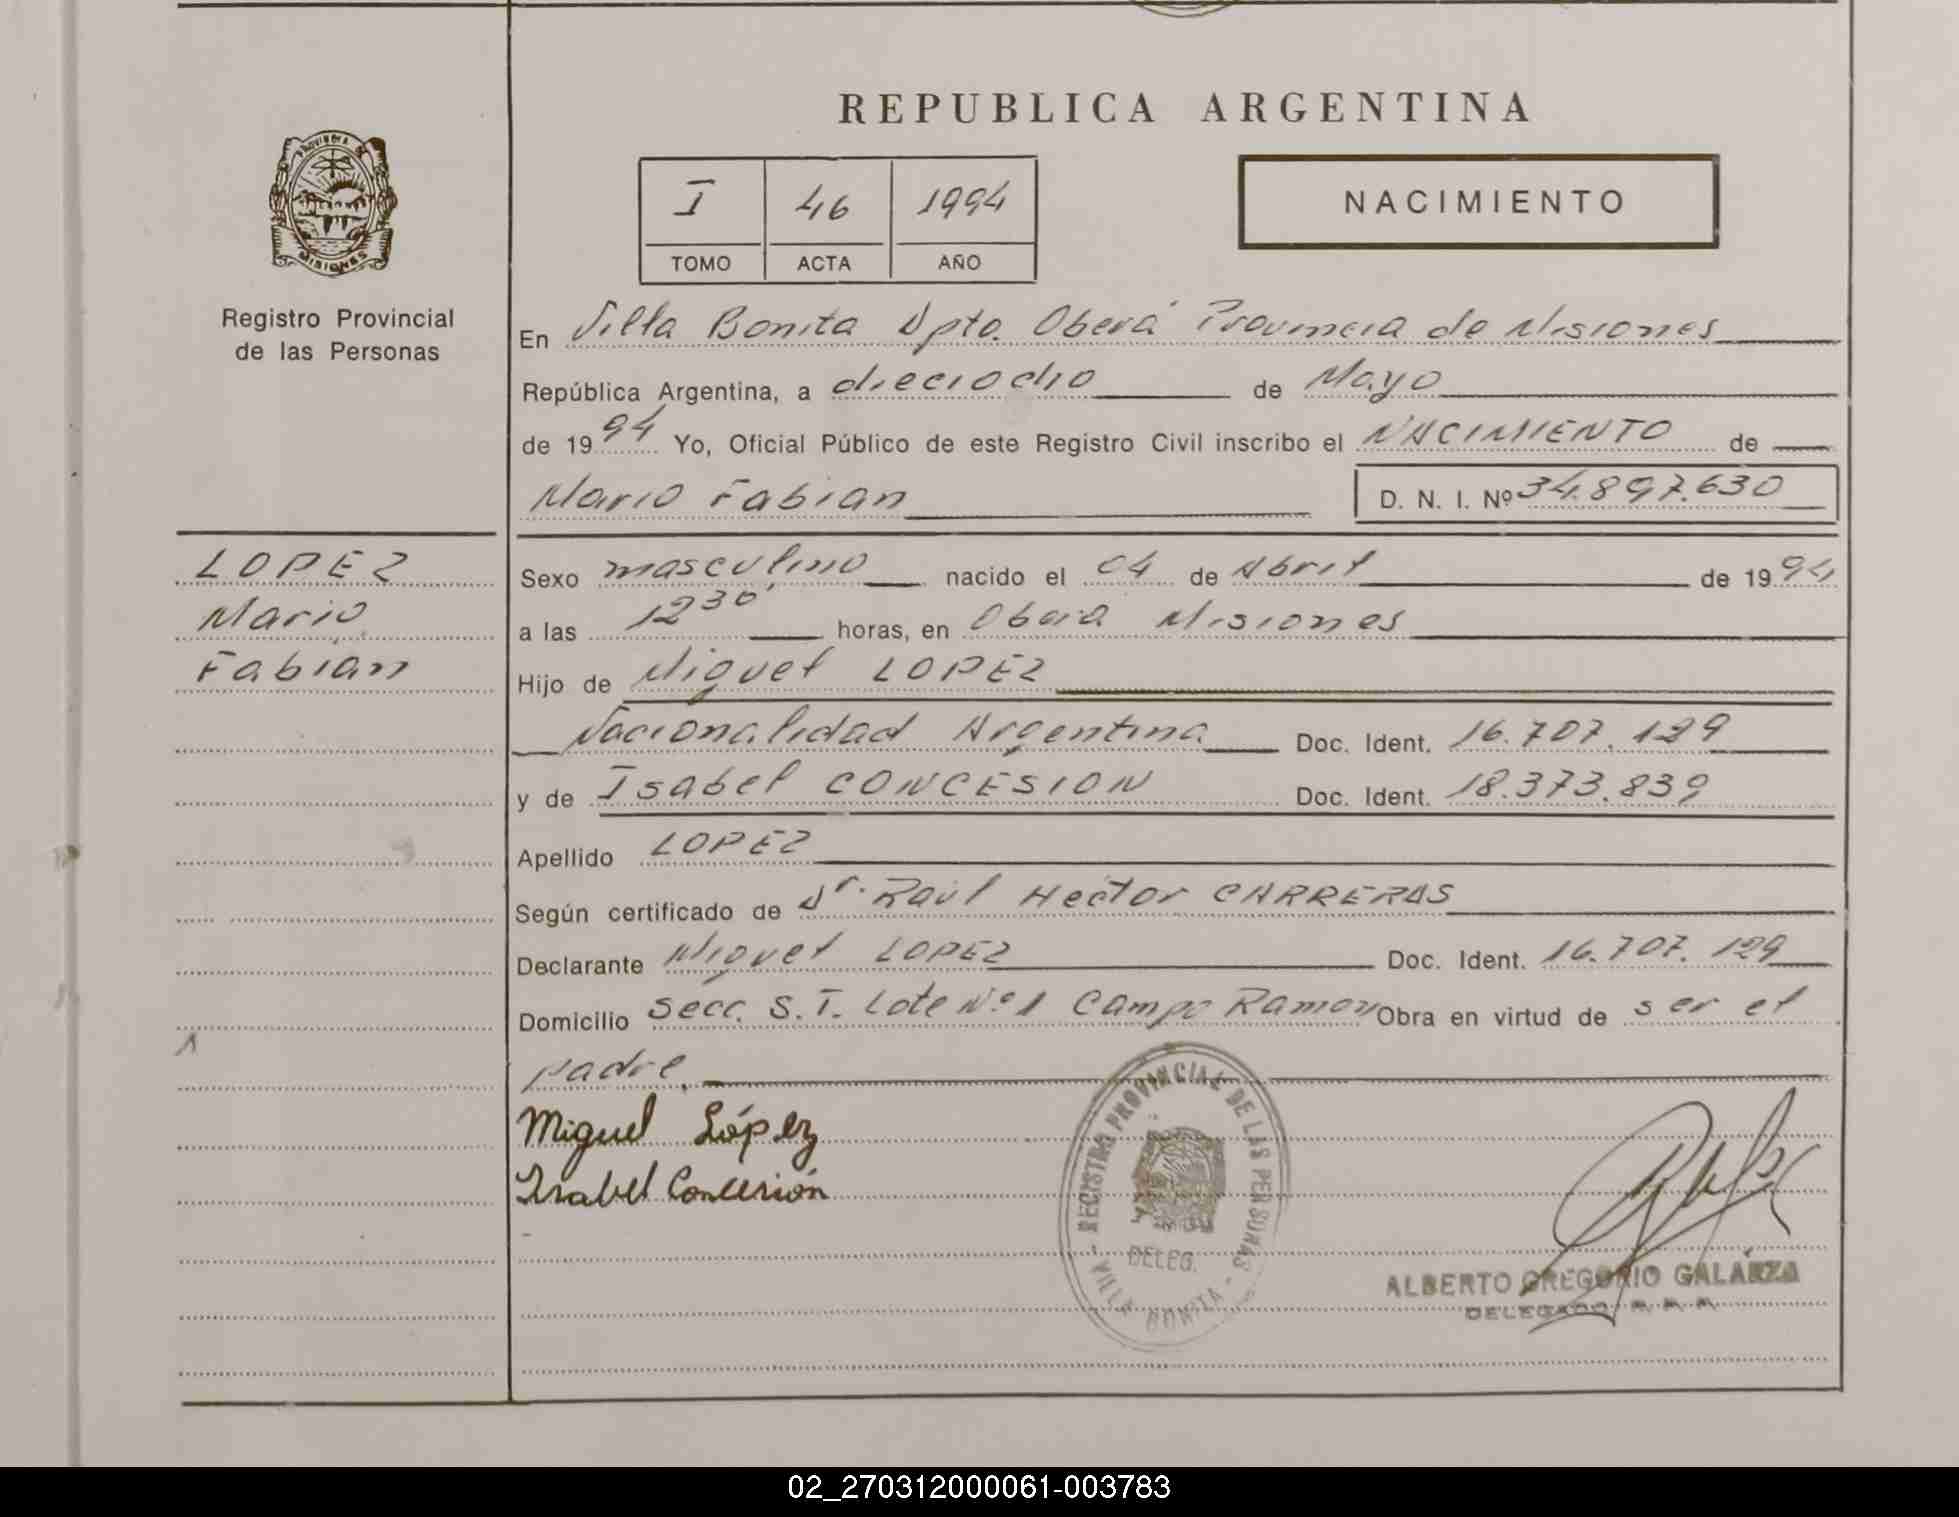 REPUBLICA ARGENTINA
PROVINCIA DE
MISIONES
Registro Provincial
de las Personas
I 46 1994
TOMO ACTA AÑO
NACIMIENTO
En Villa Bonita Dpto. Oberá Provincia de Misiones
República Argentina, a dieciocho de Mayo
de 1994 Yo, Oficial Público de este Registro Civil inscribo el NACIMIENTO de
Mario Fabian D. N. I. Nº 34.897.630
LOPEZ
Mario
Fabian
Sexo masculino nacido el 04 de Abril de 1994
a las 12 30 horas, en Oberá Misiones
Hijo de Miguel LOPEZ
Nacionalidad Argentina Doc. Ident. 16.707.129
y de Isabel CONCESION Doc. Ident. 18.373.839
Apellido LOPEZ
Según certificado de Dr. Raúl Hector CARRERAS
Declarante Miguel LOPEZ Doc. Ident. 16.707.129
Domicilio Secc. S. I. Lote Nº 1 Campo Ramon Obra en virtud de ser el
padre.
Miguel López
Isabel Concesión
REGISTRO PROVINCIAL DE LAS PERSONAS
DELEG.
VILLA BONITA
ALBERTO GREGORIO GALARZA
DELEGADO
02_270312000061-003783